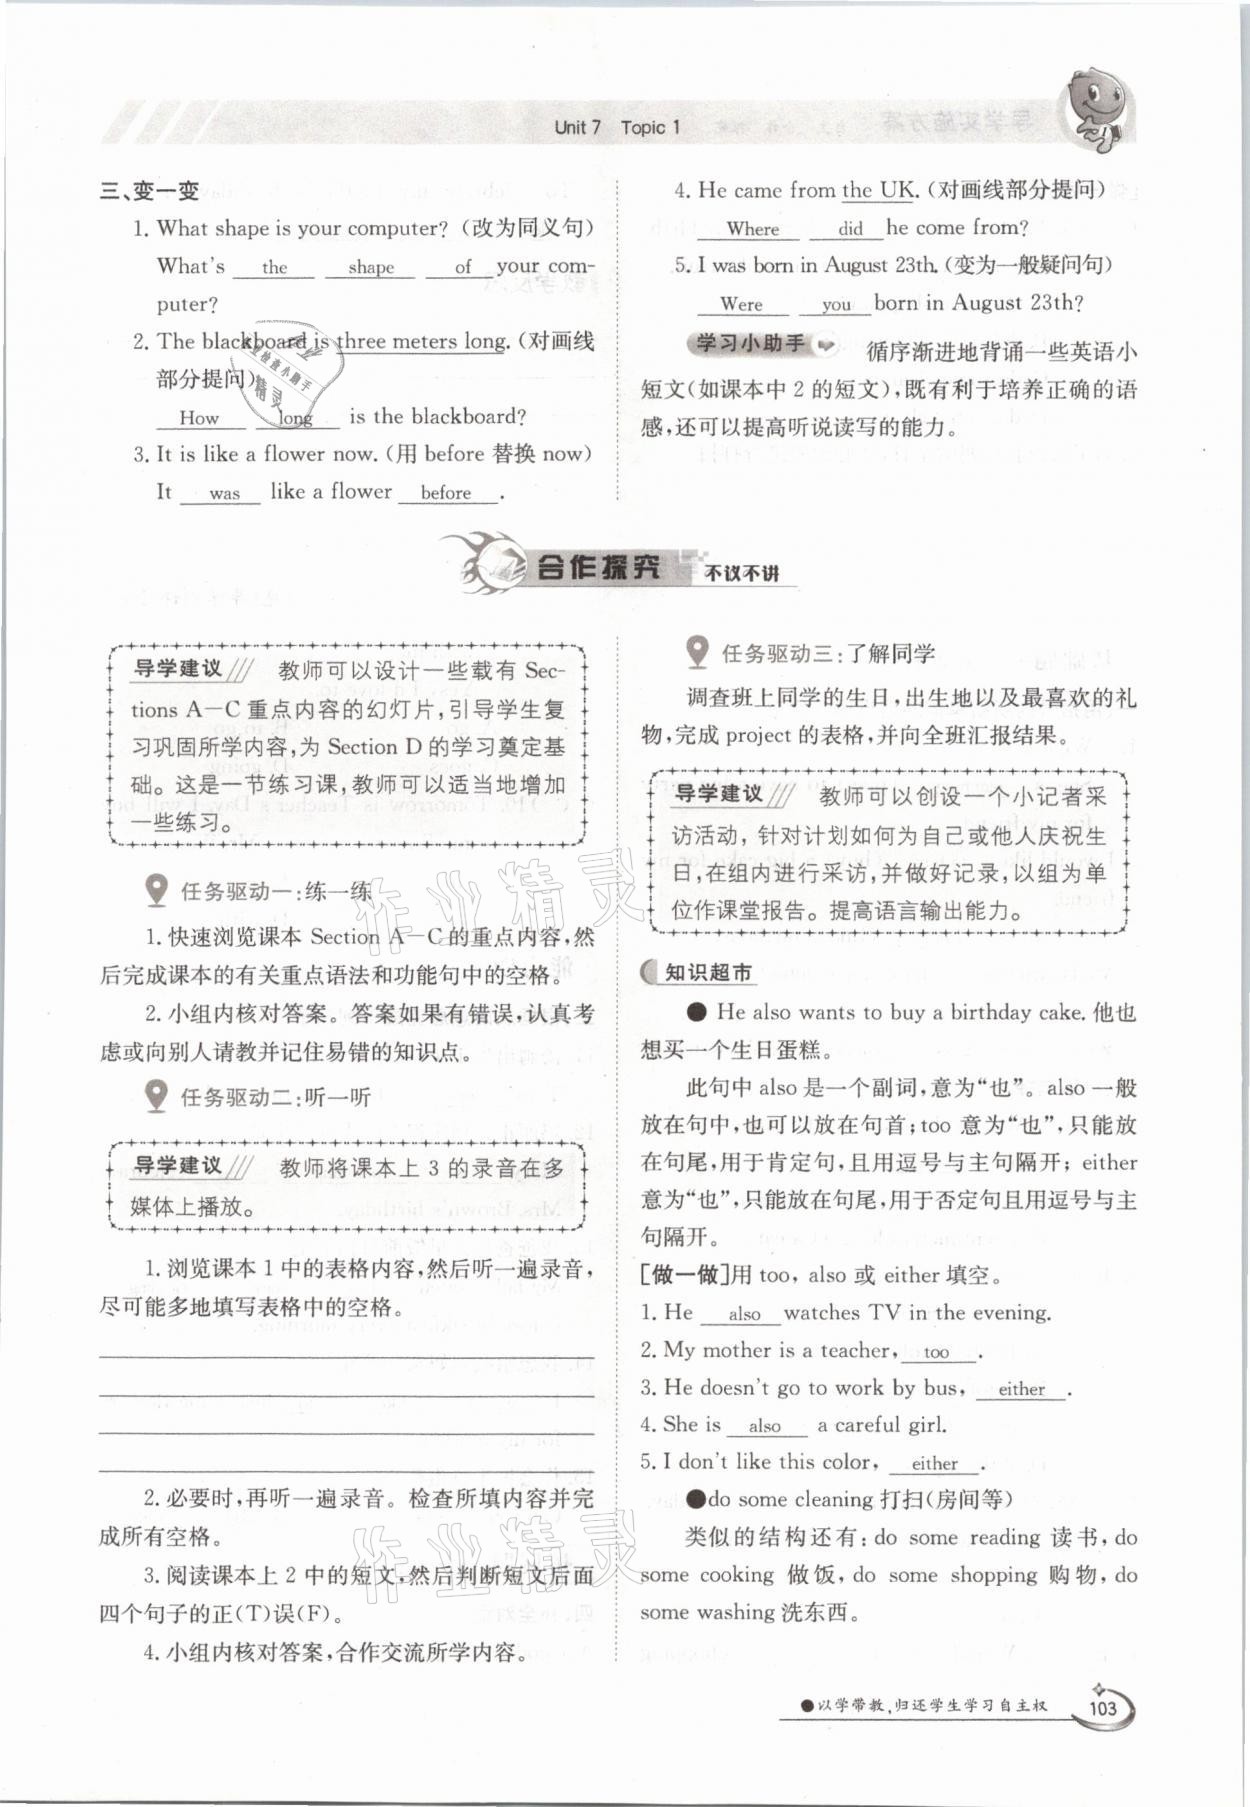 Unit 7 Topic 1
三、变一变
1. What shape is your computer?(改为同义句)
What's the shape of your com-
puter?
2. The blackboard is three meters long.(对画线
部分提问)
How long is the blackboard?
3. It is like a flower now.(用 before 替换 now)
It was like a flower before .
4. He came from the UK.(对画线部分提问)
Where did he come from?
5. I was born in August 23th.(变为一般疑问句)
Were you born in August 23th?
学习小助手 循序渐进地背诵一些英语小
短文(如课本中 2 的短文),既有利于培养正确的语
感,还可以提高听说读写的能力。
合作探究 不议不讲
导学建议 教师可以设计一些载有 Sec-
tions A-C 重点内容的幻灯片,引导学生复
习巩固所学内容,为 Section D 的学习奠定基
础。这是一节练习课,教师可以适当地增加
一些练习。
任务驱动一:练一练
1. 快速浏览课本 Section A-C 的重点内容,然
后完成课本的有关重点语法和功能句中的空格。
2. 小组内核对答案。答案如果有错误,认真考
虑或向别人请教并记住易错的知识点。
任务驱动二:听一听
导学建议 教师将课本上 3 的录音在多
媒体上播放。
1. 浏览课本 1 中的表格内容,然后听一遍录音,
尽可能多地填写表格中的空格。
2. 必要时,再听一遍录音。检查所填内容并完
成所有空格。
3. 阅读课本上 2 中的短文,然后判断短文后面
四个句子的正(T)误(F)。
4. 小组内核对答案,合作交流所学内容。
任务驱动三:了解同学
调查班上同学的生日,出生地以及最喜欢的礼
物,完成 project 的表格,并向全班汇报结果。
导学建议 教师可以创设一个小记者采
访活动,针对计划如何为自己或他人庆祝生
日,在组内进行采访,并做好记录,以组为单
位作课堂报告。提高语言输出能力。
知识超市
● He also wants to buy a birthday cake. 他也
想买一个生日蛋糕。
此句中 also 是一个副词,意为“也”。also 一般
放在句中,也可以放在句首;too 意为“也”,只能放
在句尾,用于肯定句,且用逗号与主句隔开;either
意为“也”,只能放在句尾,用于否定句且用逗号与主
句隔开。
[做一做]用 too, also 或 either 填空。
1. He also watches TV in the evening.
2. My mother is a teacher, too .
3. He doesn't go to work by bus, either .
4. She is also a careful girl.
5. I don't like this color, either .
●do some cleaning 打扫(房间等)
类似的结构还有: do some reading 读书, do
some cooking 做饭, do some shopping 购物, do
some washing 洗东西。
●以学带教,归还学生学习自主权
103
作业精灵
作业精灵